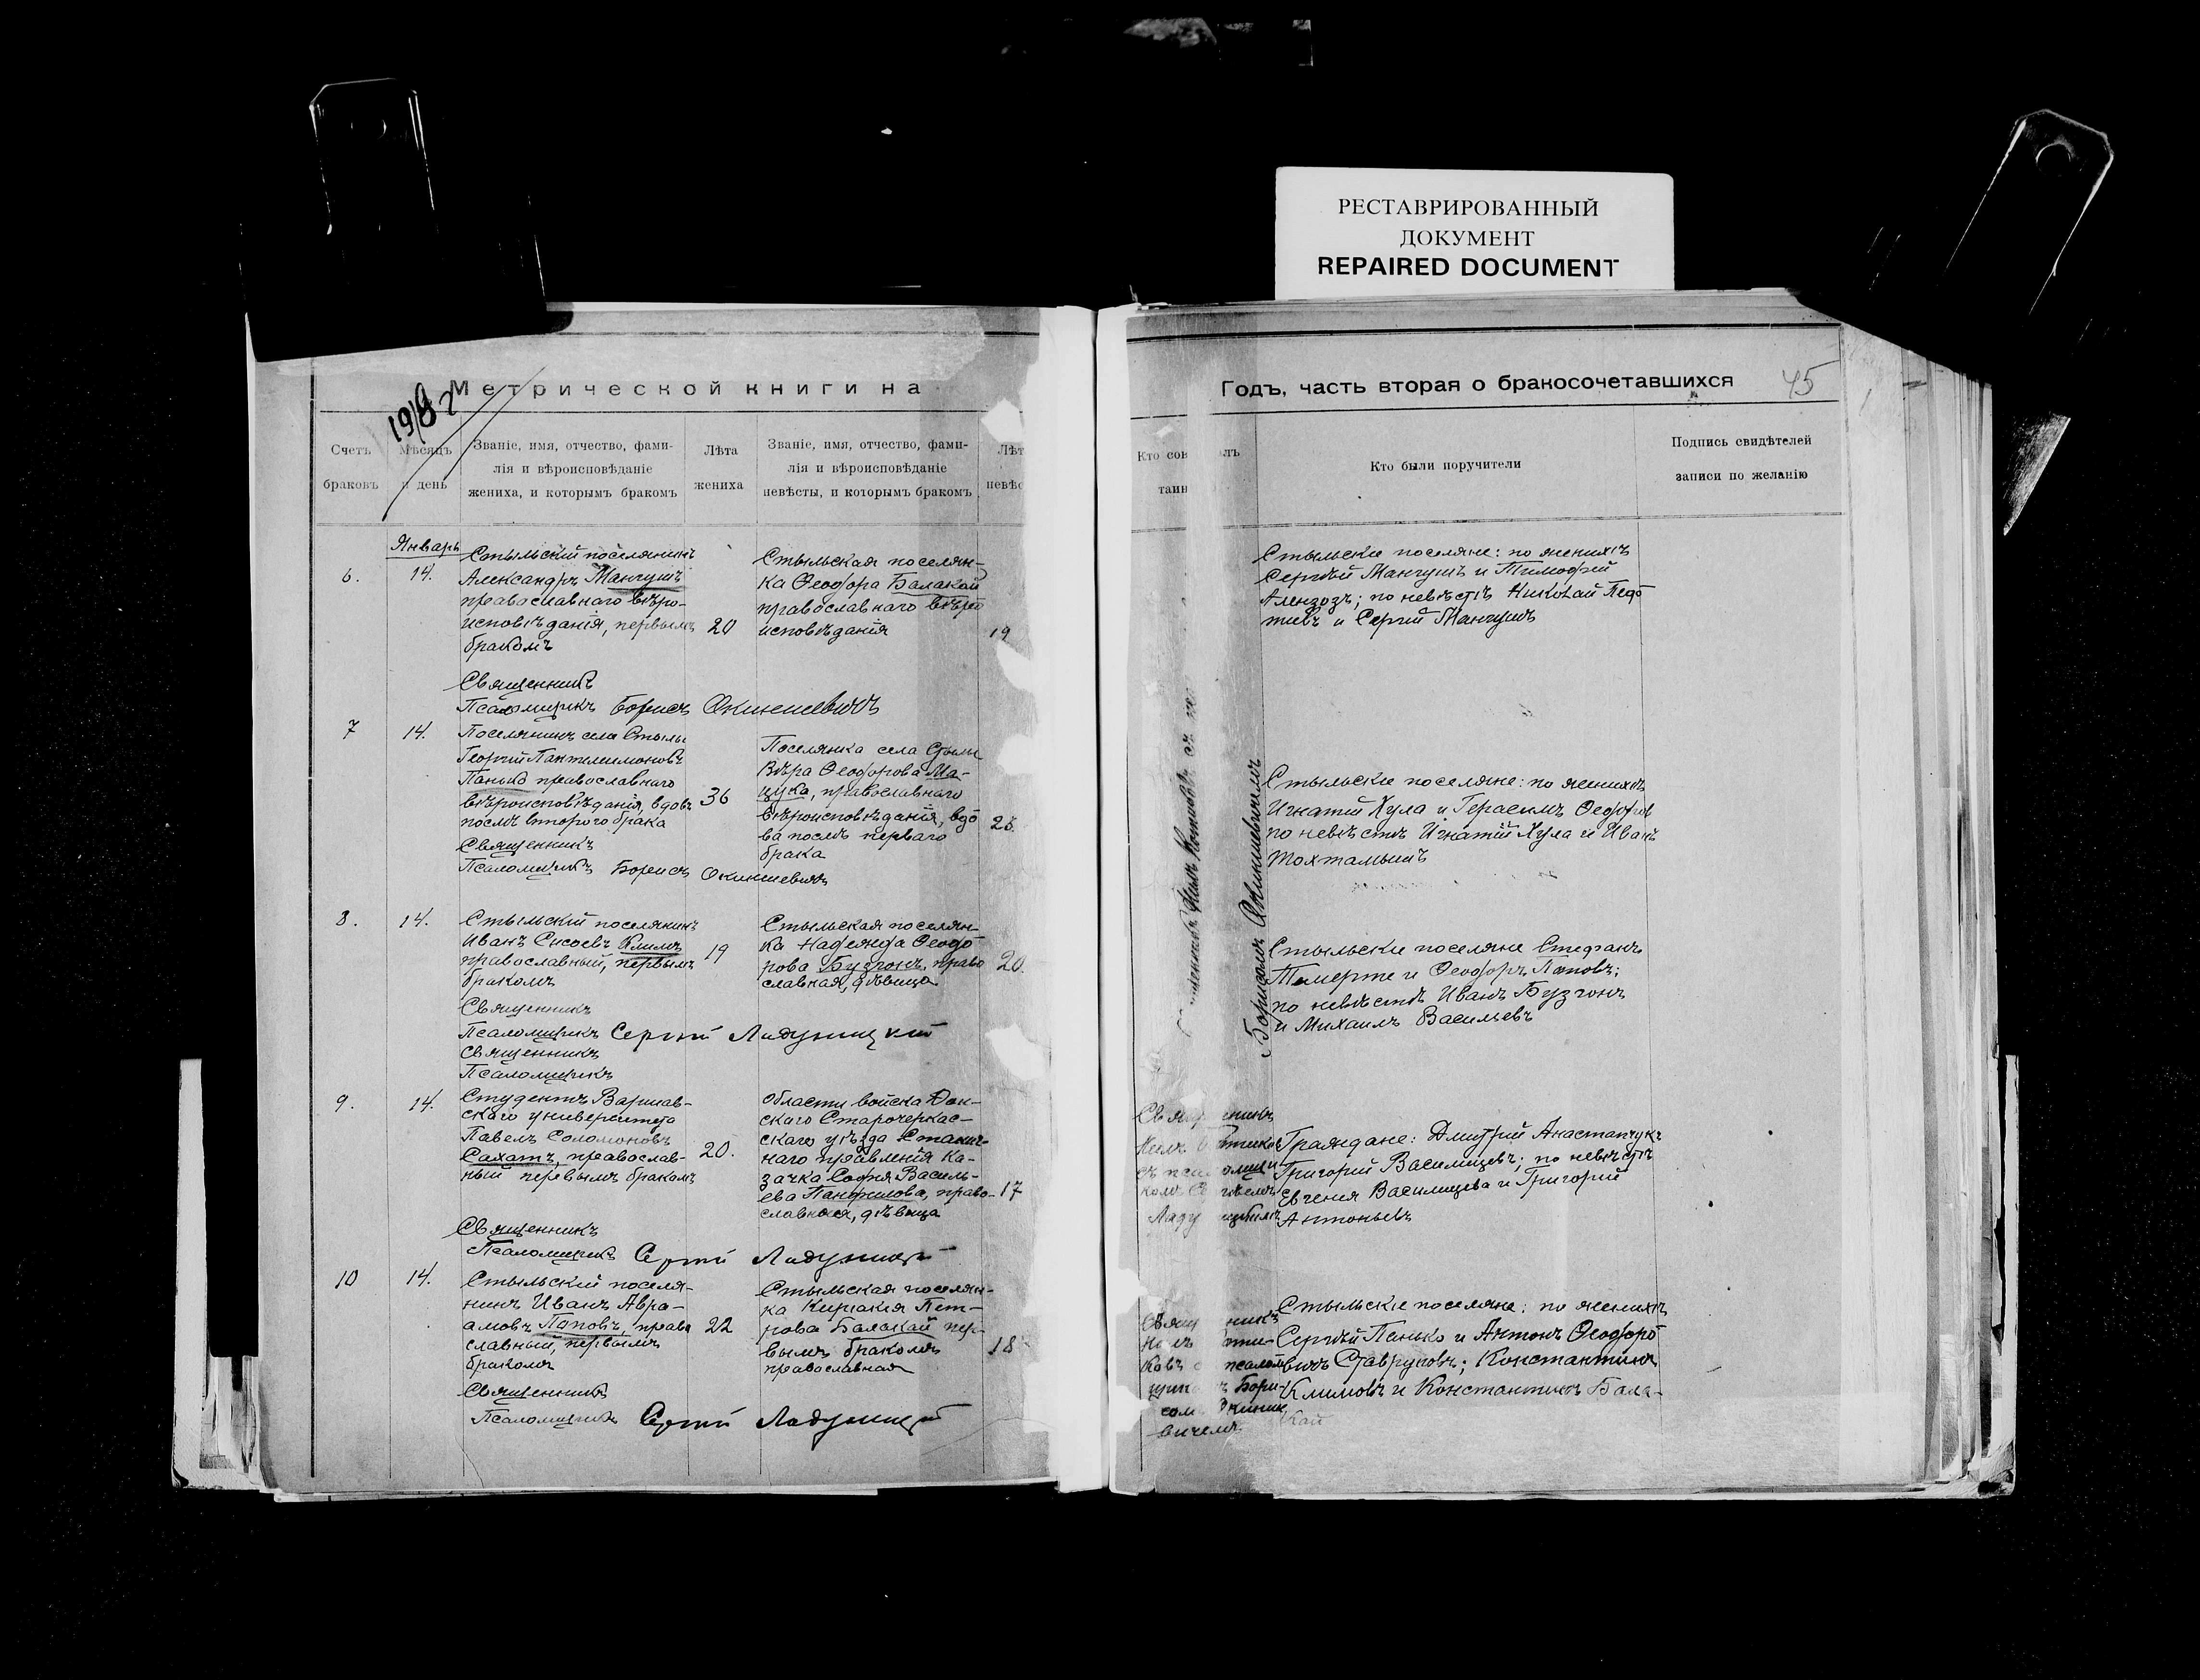 РЕСТАВРИРОВАННЫЙ
ДОКУМЕНТ
REPAIRED DOCUMENT
Метрической книги на
Годъ, часть вторая о бракосочетавшихся
45
Счетъ
браковъ
Мѣсяцъ
и день
Званіе, имя, отчество, фами-
лія и вѣроисповѣданіе
жениха, и которымъ бракомъ
Лѣта
жениха
Званіе, имя, отчество, фами-
лія и вѣроисповѣданіе
невѣсты, и которымъ бракомъ
Лѣт
невѣс
Кто сов
таин
Кто были поручители
Подпись свидѣтелей
записи по желанію
Январь
6.
14.
Стыльскій поселянинъ
Александръ Мангушъ
православнаго вѣро-
исповѣданія, первымъ
бракомъ
20
Стыльская поселян-
ка Ѳеодора Балакай
православнаго вѣро
исповѣданія
19
Стыльскіе поселяне: по женихѣ
Сергѣй Мангушъ и Тимофей
по невѣстѣ Николай
и Сергій Мангушъ
Священникъ
Псаломщикъ Борисъ Окиншевичъ
7
14.
Поселянинъ села Стылы
Георгій Пантелимоновъ
Панько православнаго
вѣроисповѣданія, вдовъ
послѣ второго брака
36
Поселянка села Стылы
Вѣра Ѳеодорова Ма-
цука, православнаго
вѣроисповѣданія, вдо
ва послѣ перваго
брака
Стыльскіе поселяне: по женихѣ
Игнатій Хула и Герасимъ
по невѣстѣ Игнатій Хула и Иванъ
Тохтамышъ
Священникъ
Псаломщикъ Борисъ Окиншевичъ
8.
14.
Стыльскій поселянинъ
Иванъ Сисоевъ Климъ
православный, первымъ
бракомъ
19
Стыльская поселян-
ка Надежда Ѳеодо
рова Бузгонъ, право
славная, дѣвица
20.
Стыльскіе поселяне Стефанъ
Темерте и Ѳеодоръ Поповъ;
по невѣстѣ Иванъ Бузгонъ
и Михаилъ Васильевъ
Борисомъ Окиншевичемъ
Священникъ
Псаломщикъ Сергій Ладушицкій
Священникъ
Псаломщикъ
9.
14.
Студентъ Варшав-
скаго университета
Павелъ Соломоновъ
Сахатъ, православ-
ный первымъ бракомъ
20.
Области войска Дон-
скаго Старочеркас-
скаго уѣзда Станич-
наго правленія Ка-
зачка Софія Василь-
ева Панфилова, право-
славная, дѣвица
17
Граждане: Дмитрій
Григорій Василищевъ; по невѣстѣ
Евгенія Василищева и Григорій
Антоньевъ
Священникъ
Псаломщикъ Сергій Ладушицкій
10
14.
Стыльскій поселя-
нинъ Иванъ Авра-
амовъ Поповъ, право
славный, первымъ
бракомъ
22
Стыльская поселян-
ка Киріакія Пет-
рова Балакай пер-
вымъ бракомъ
православная
18
Стыльскіе поселяне: по женихѣ
Сергѣй Панько и Антонъ Ѳеодоро
вичъ Ставруновъ; Константинъ
Климовъ и Константинъ Бала-
кай
Священникъ
Псаломщикъ Сергій Ладушицкій